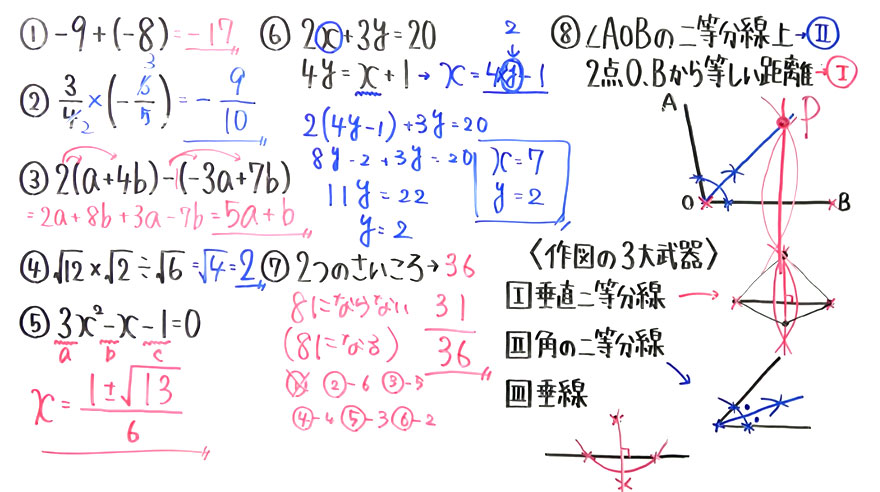 ① -9+(-8)=-17
② 3/4×(-6/5)=-9/10
3
2
③ 2(a+4b)-(-3a+7b)
=2a+8b+3a-7b=5a+b
④ √12×√2÷√6=√4=2
⑤ 3x²-x-1=0
a b c
x=(1±√13)/6
⑥ 2x+3y=20
4y=x+1→x=4y-1
2
2(4y-1)+3y=20
8y-2+3y=20
11y=22
y=2
x=7
y=2
⑦ 2つのさいころ→36
8にならない 31/36
(8になる)
②-6 ③-5
④-4 ⑤-3 ⑥-2
⑧ ∠AOBの二等分線上→Ⅱ
2点O.Bから等しい距離→Ⅰ
A
P
O
B
〈作図の3大武器〉
Ⅰ垂直二等分線
Ⅱ角の二等分線
Ⅲ垂線